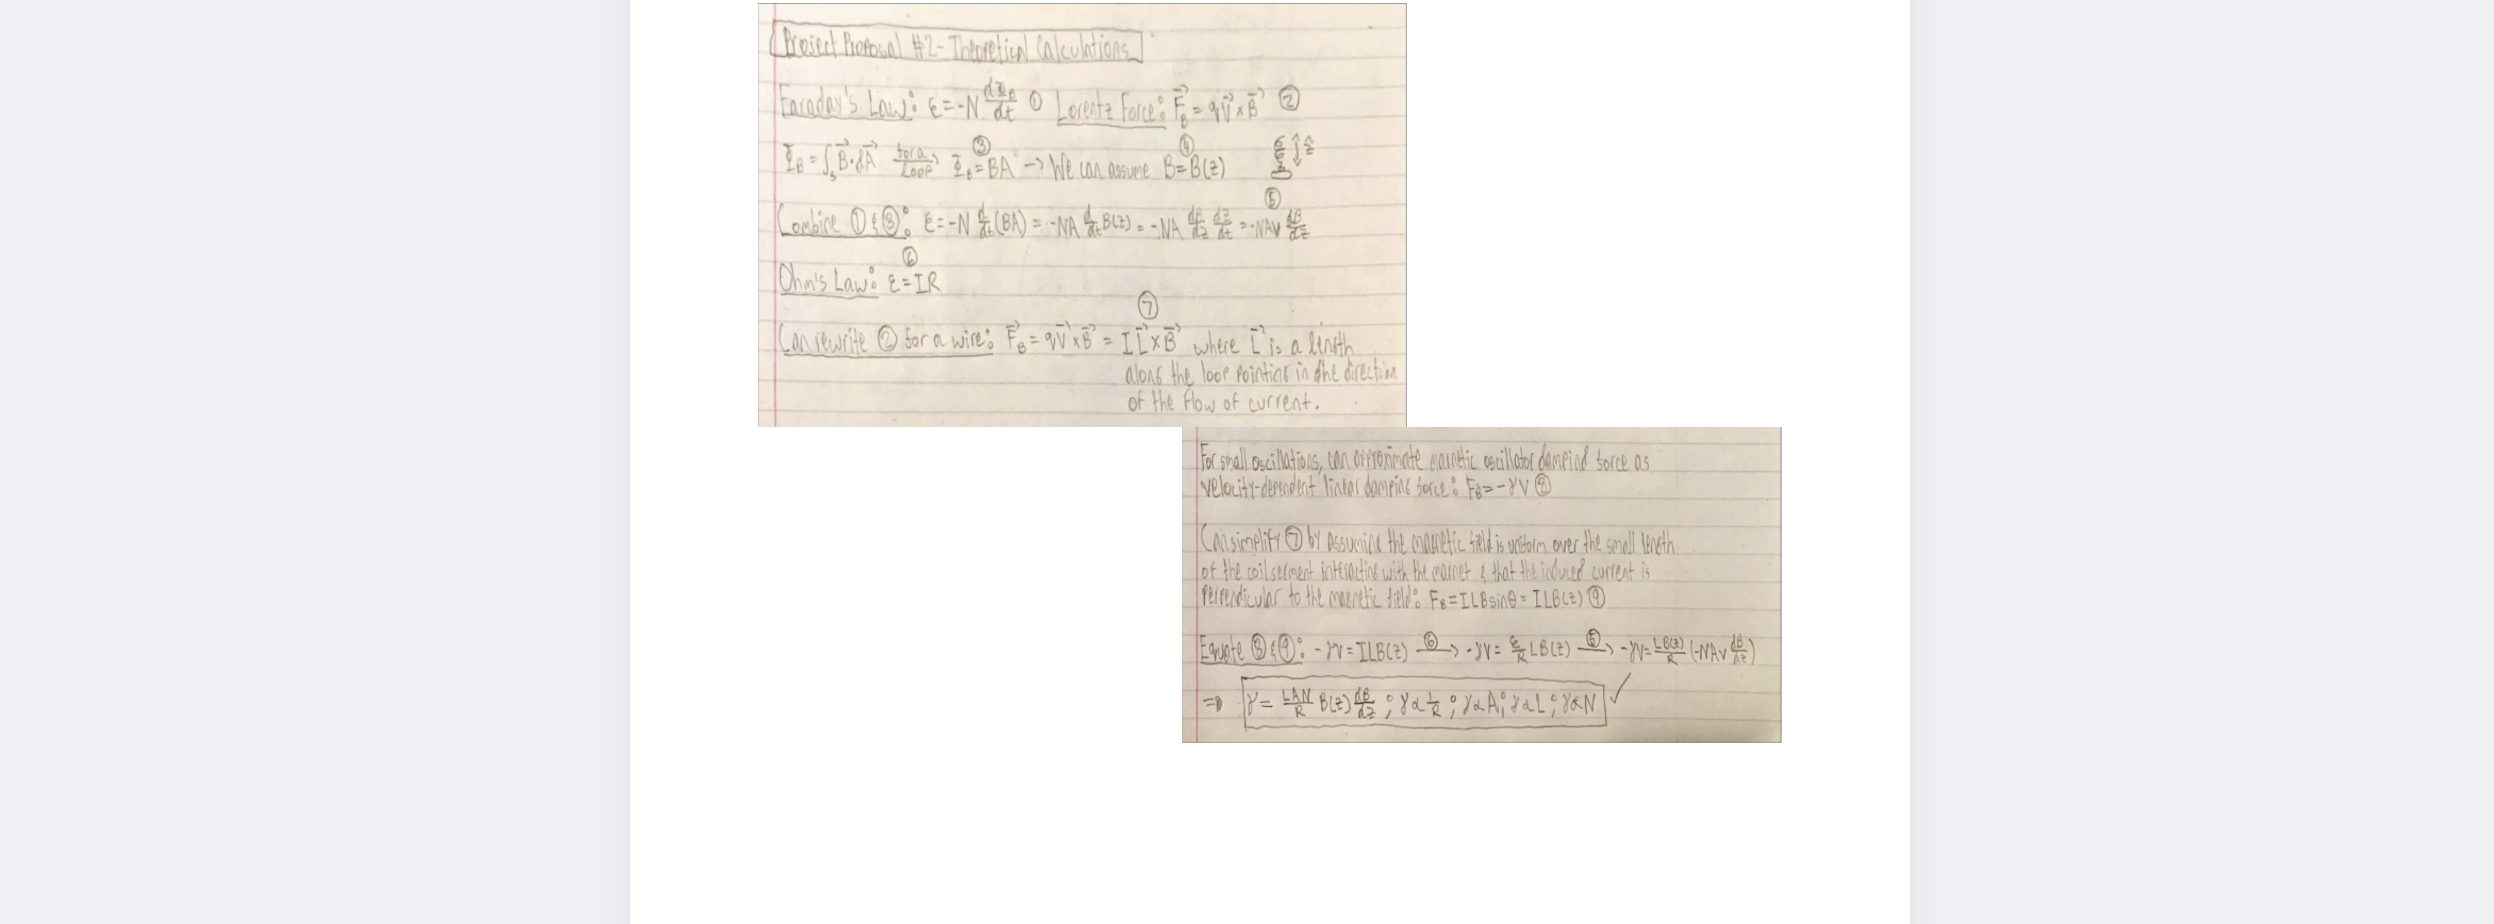 Project Proposal #2 - Theoretical Calculations
Faraday's Law: ε = -N dΦ_B/dt ① Lorentz Force: F⃗_B = qV⃗ × B⃗ ②
Φ_B = ∫_S B⃗·dA⃗ for a loop → Φ_B = BA ③ → We can assume B = B(z) ④ ẑ
Combine ① & ③: ε = -N d/dt (BA) = -NA d/dt B(z) = -NA dB/dz dz/dt = -NAv dB/dz ⑤
Ohm's Law: ε = IR ⑥
Can rewrite ② for a wire: F⃗_B = qV⃗ × B⃗ = I L⃗ × B⃗ ⑦ where L⃗ is a length
along the loop pointing in the direction
of the flow of current.
For small oscillations, can approximate magnetic oscillator damping force as
velocity-dependent linear damping force: F_B = -γv ⑧
Can simplify ⑦ by assuming the magnetic field is uniform over the small length
of the coil segment interacting with the magnet & that the induced current is
perpendicular to the magnetic field: F_B = ILB sinθ = ILB(z) ⑨
Equate ⑧ & ⑨: -γv = ILB(z) ⑥→ -γv = ε/R LB(z) ⑤→ -γv = LB(z)/R (-NAv dB/dz)
⇒ γ = LAN/R B(z) dB/dz ; γ α 1/R ; γ α A ; γ α L ; γ α N ✓